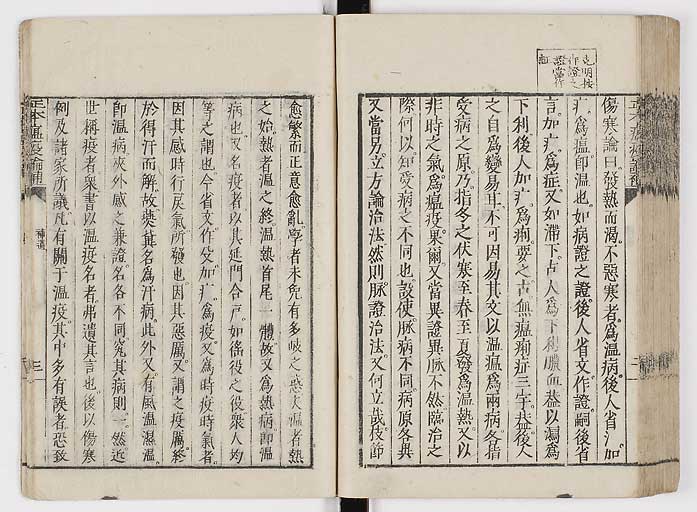 克明按
作證之
證當作
証
傷寒論曰發熱而渴不惡寒者爲溫病後人省氵加
疒爲瘟即溫也如病證之證後人省文作證嗣後省
言加疒爲症又如滯下古人爲下利膿血蓋以瀉爲
下利後人加疒爲痢要之古無瘟痢症三字蓋後人
之自爲變易耳不可因易其文以溫瘟爲兩病各指
受病之原乃指冬之伏寒至春至夏發爲溫熱又以
非時之氣爲瘟疫果爾又當異證異脉不然臨治之
際何以知受病之不同也設使脉病不同病原各異
又當另立方論治法然則脉證治法又何立哉枝節
愈繁而正意愈亂學者未免有多岐之惑夫溫者熱
之始熱者溫之終溫熱首尾一體故又爲熱病即溫
病也又名疫者以其延門合戶如徭役之役衆人均
等之謂也今省文作殳加疒爲疫又爲時疫時氣者
因其感時行戾氣所發也因其惡厲又謂之疫厲終
於得汗而解故燕冀名爲汗病此外又有風溫濕溫
即溫病夾外感之兼證名各不同究其病則一然近
世稱疫者衆書以溫疫名者弗遺其言也後以傷寒
例及諸家所議凡有關于溫疫其中多有誤者恐致
正本溫疫論補
三